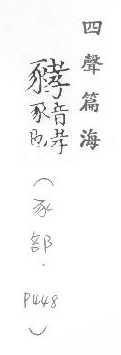 四聲篇海
音孝豕
(豕部.P448)